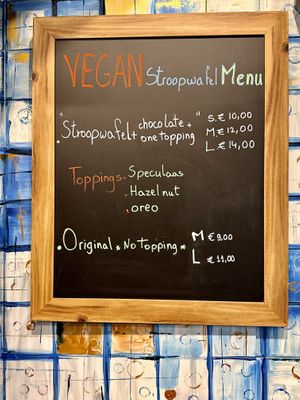 VEGAN Stroopwafel Menu
"Stroopwafel + chocolate + one topping" S. € 10,00
M € 12,00
L € 14,00
Toppings. Speculaas
. Hazelnut
. oreo
. Original * No Topping * M € 9,00
L € 11,00